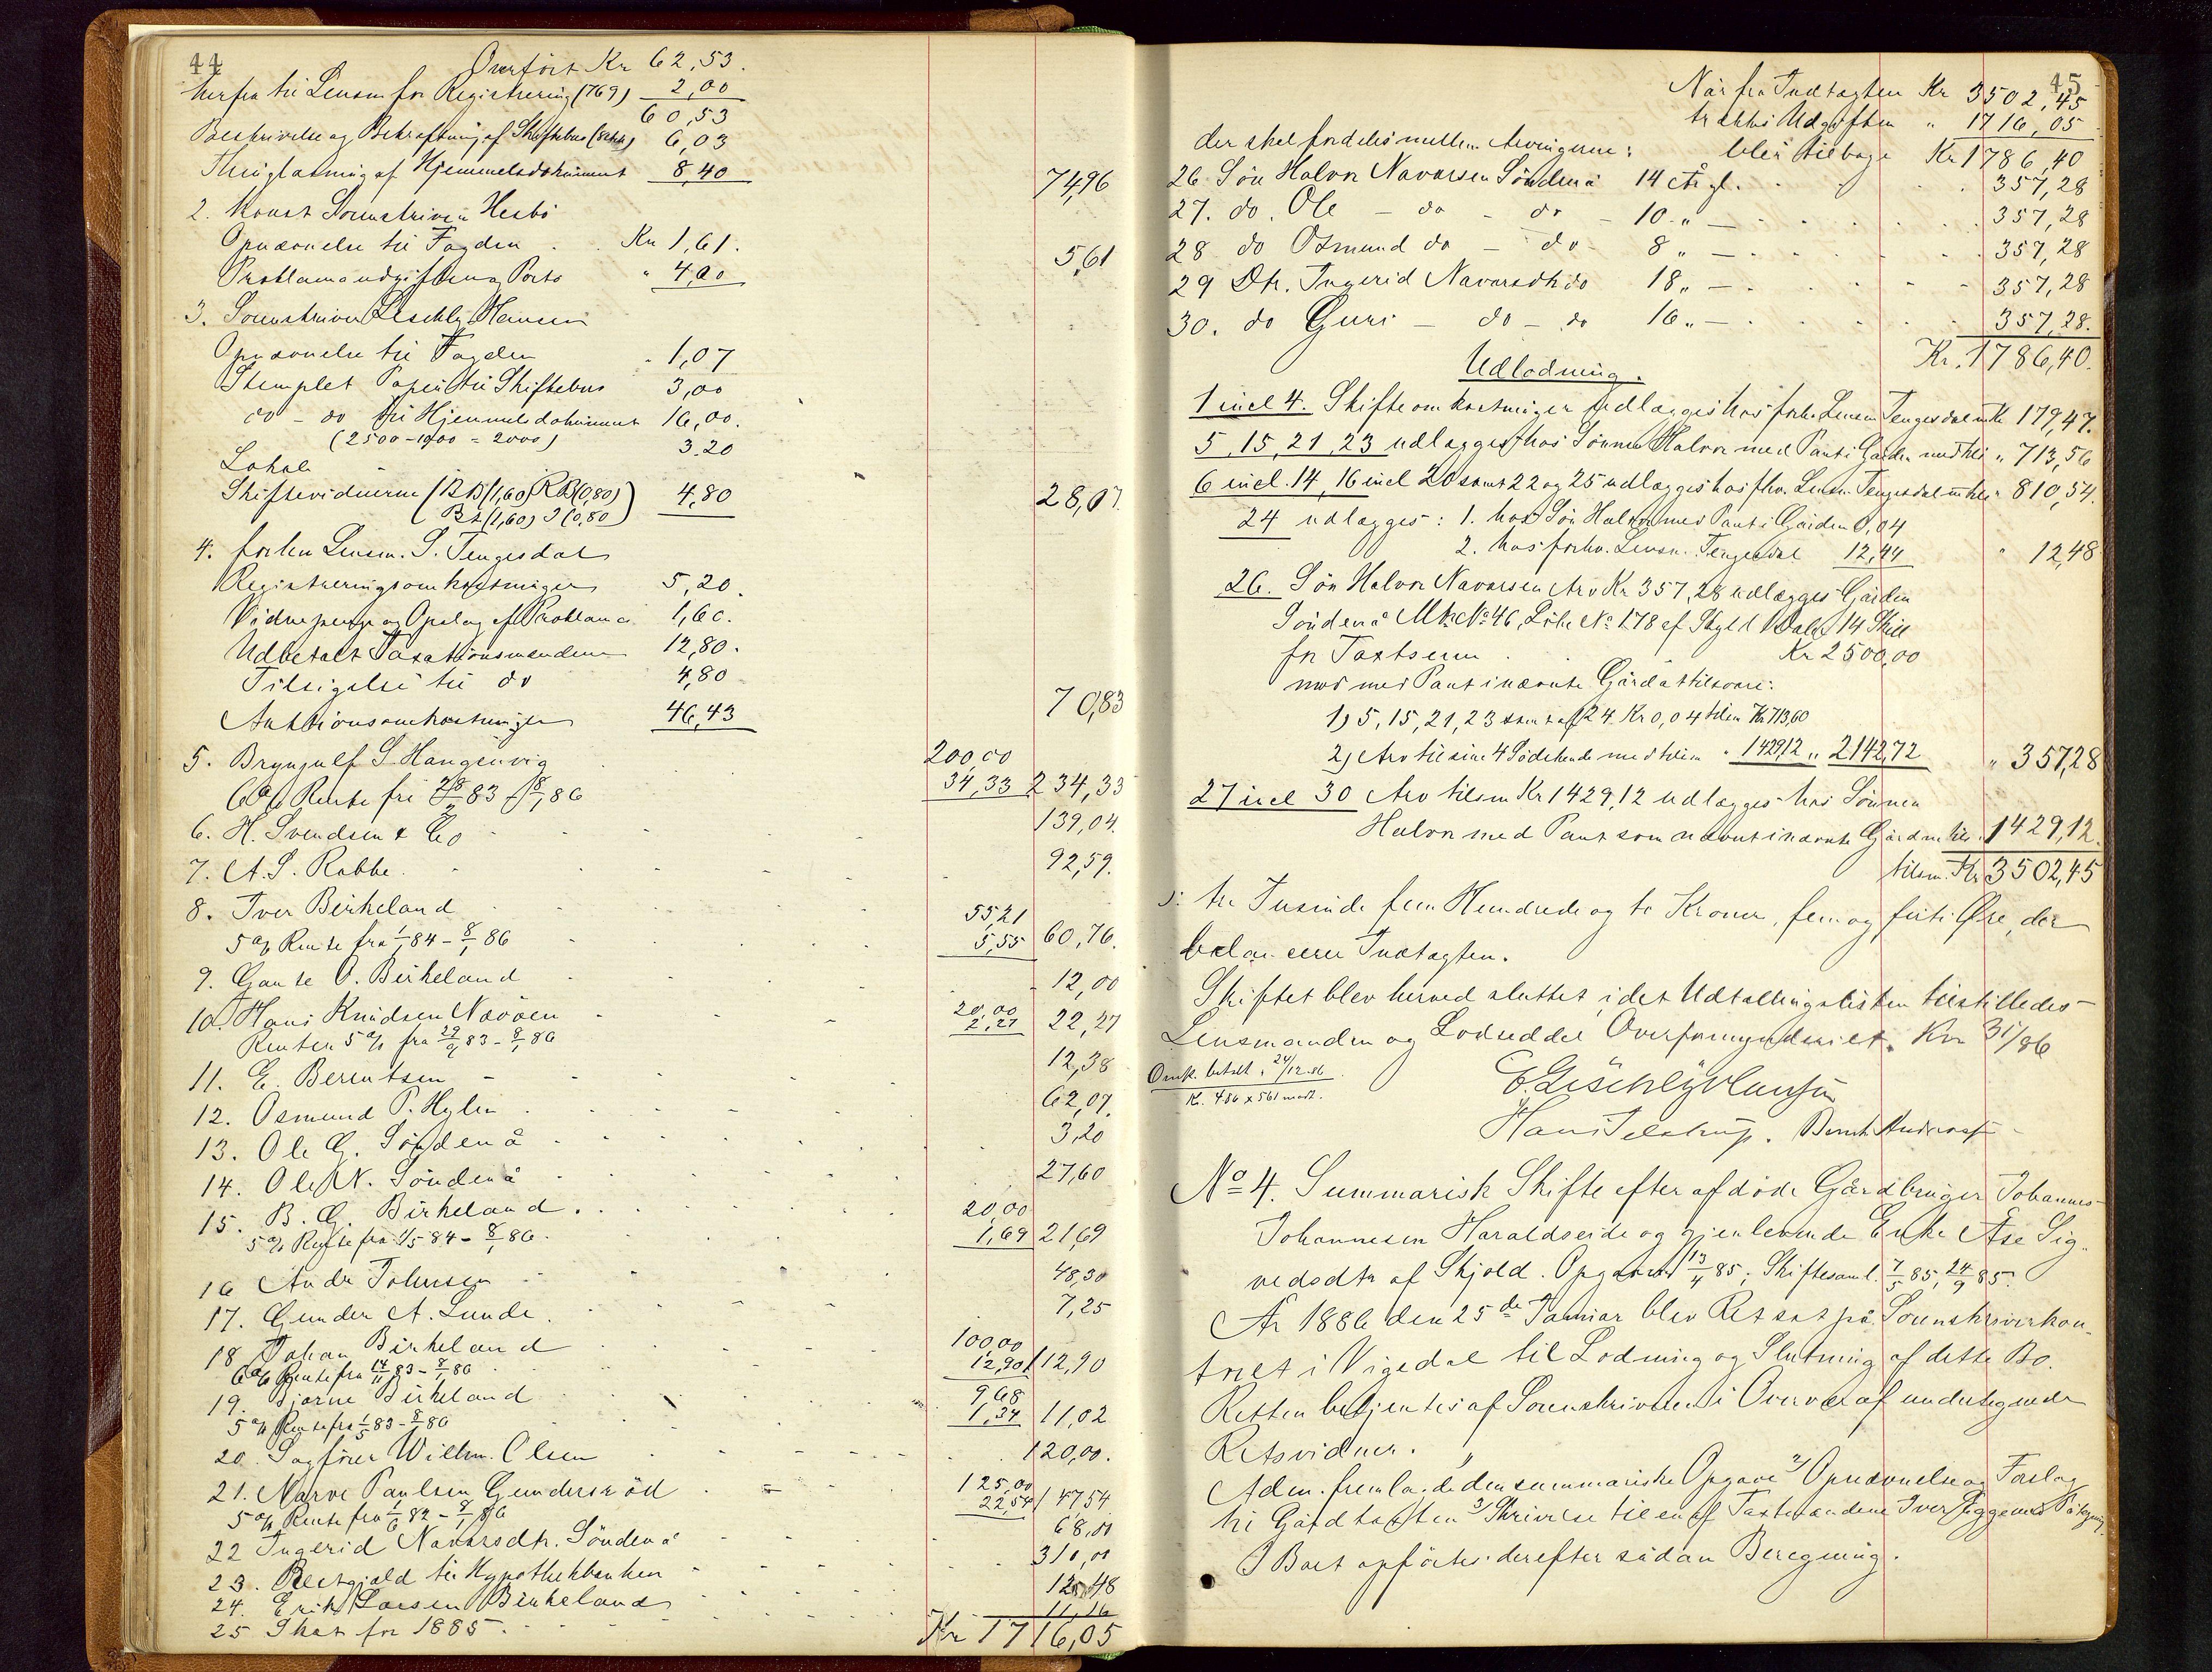 44
Overført Kr 62,53.
herfra til Lensm for Registrering (1769) 2,00
60,53
Beskrivelse og Bekræftning af Skiftebrev 6,03
Thinglæsning af Hjemmelsdokument 8,40 74,96
2. Konst Sorenskriver Hesbö
Opnævnelse til Fogden . . Kr 1,61.
Proklamaudgiften og Porto " 4,00 5,61
3. Sorenskriver Lischly Hansen
Opnævnelse til Fogden " 1,07
Stemplet Papir til Skiftebrev 3,00
do - do til Hjemmelsdokument 16,00.
(2500 - 1900 = 2000)
Lokale 3.20
Skiftevidnerne (BB (1,60) RB (0,80) 4,80 28,07
Bt (1,60) I (0,80)
4. forhen Lensm. S. Tengesdal
Registreringsomkostninger 5,20.
Vidnepenge og Opslag af Proklama 1,60.
Udbetalt Taxationsmændene 12,80.
Tilsigelse til do 4,80
Auktionsomkostninger 46,43 70,83
5. Brynjulf S Hangenvig 200,00
6 % Rente fra 28/2 83 - 8/1 86 34,33 234,33
6. H. Svendsen & Co 139,04.
7. A. S. Rabbe 92,59.
8. Iver Birkeland 55,21
5 % Rente fra 1/1 84 - 8/1 86 5,55 60,76.
9. Gaute O. Birkeland 12,00
10. Hans Knudsen Nævøen 20,00
Renter 5 % fra 29/9 83 - 8/1 86 2,27 22,27
11. E. Berentsen 12,38
12. Osmund P. Hylen 62,09.
13. Ole G. Söndenå 3,20
14. Ole N. Söndenå 27,60
15. B. G. Birkeland 20,00
5 % Rente fra 1/5 84 - 8/1 86. 1,69 21,69
16 Andr Johnsen 48,30
17. Gunder A. Lunde. 7,25
18 Johan Birkeland 100,00
6 % Rente fra 14/11 83 - 8/1 86 12,90 112,90
19. Bjarne Birkeland 9,68
5 % Rente fra 1/5 83 - 8/1 86 1,34 11,02
20. Sagfører Wilhm. Olsen 120,00.
21. Narve Paulsen Gundersröd 125,00
5 % Rente fra 1/6 82 - 8/1 86 22,54 147,54
22 Ingerid Navarsdtr. Söndenå 68,00
23. Restgjæld til Hypothekbanken 310,00
24. Erik Larsen Birkeland 12,48
25 Skat for 1885. 11,16
Kr 1716,05
45
Når fra Indtægten Kr 3502,45
trækkes Udgiften " 1716,05
blir tilbage Kr 1786,40
der skal fordeles mellem Arvingerne:
26 Søn Halvor Navarsen Söndenå 14 År gl. 357,28
27. do. Ole - do - do - 10 " - 357,28
28 do Osmund do - do - 8 " - 357,28
29 Dtr. Ingerid Navarsdtr do 18 " - 357,28
30. do Guri - do - do 16 " - 357,28.
Kr. 1786,40.
Udlodning.
1 incl 4. Skifteomkostninger udlægges hos forhv. Lensm Tengesdal m Kr 179,47.
5, 15, 21, 23 udlægges hos Sönnen Halvor med Pant i Gården med Kr " 713,56
6 incl. 14, 16 incl 20 samt 22 og 25 udlægges hos fhv. Lensm. Tengesdal m Kr " 810,54.
24 udlægges: 1. hos Søn Halvor med Pant i Gården 0,04
2. hos forhv. Lensm. Tengesdal 12,44 " 12,48
26. Søn Halvor Navarsen Arv Kr 357,28 udlægges Gården
Söndenå Mk No 46, Löbe No 178 af Skyld 1 Daler 14 Skill
for Taxtsum . . Kr 2500,00
mod med Pant i nævnte Gård at tilsvare:
1) 5, 15, 21, 23 samt af 24 Kr 0,04 tilsm Kr 713,60
2) Arv til sine 4 Södskende med tilsm " 1429,12 " 2142,72 " 357,28
27 incl 30 Arv tilsm Kr 1429,12 udlægges hos Sönnen
Halvor med Pant som nævnt i nævnte Gård m tils. 1429,12.
tilsm. Kr 3502,45
ɔ: tre Tusinde fem Hundrede og to Kroner, fem og firti Øre, der
balancerer Indtægten.
Skiftet blev herved sluttet, idet Udtællingslisten tilstilledes
Lensmanden og Lodseddel Overformynderiet. Kr 31/86
Omk. betalt 24/12.86
Kr. 486 x 561 modt.
E Lischly Hansen
Hans Jelstrup. Bernt Andersen
No 4. Summarisk Skifte efter afdöde Gårdbruger Johannes
Johannesen Haraldseide og gjenlevende Enke Åse Sig-
vedsdtr af Skjold. Opgaven 13/4 85; Skiftesaml. 7/5 85, 24/9 85.
År 1886 den 25de Januar blev Ret sat på Sorenskriverkon-
toret i Vigedal til Lodning og Slutning af dette Bo.
Retten betjentes af Sorenskriveren i Overvær af undertegnede
Retsvidner.
Adm. fremlagde den summariske Opgave 2) Opnævnelse og Forslag
til Gårdtaxten 3) Skrivelse til en af Taxtmændene Iver Tiggen med Påtegning.
I Boet opførtes derefter sådan Beregning.